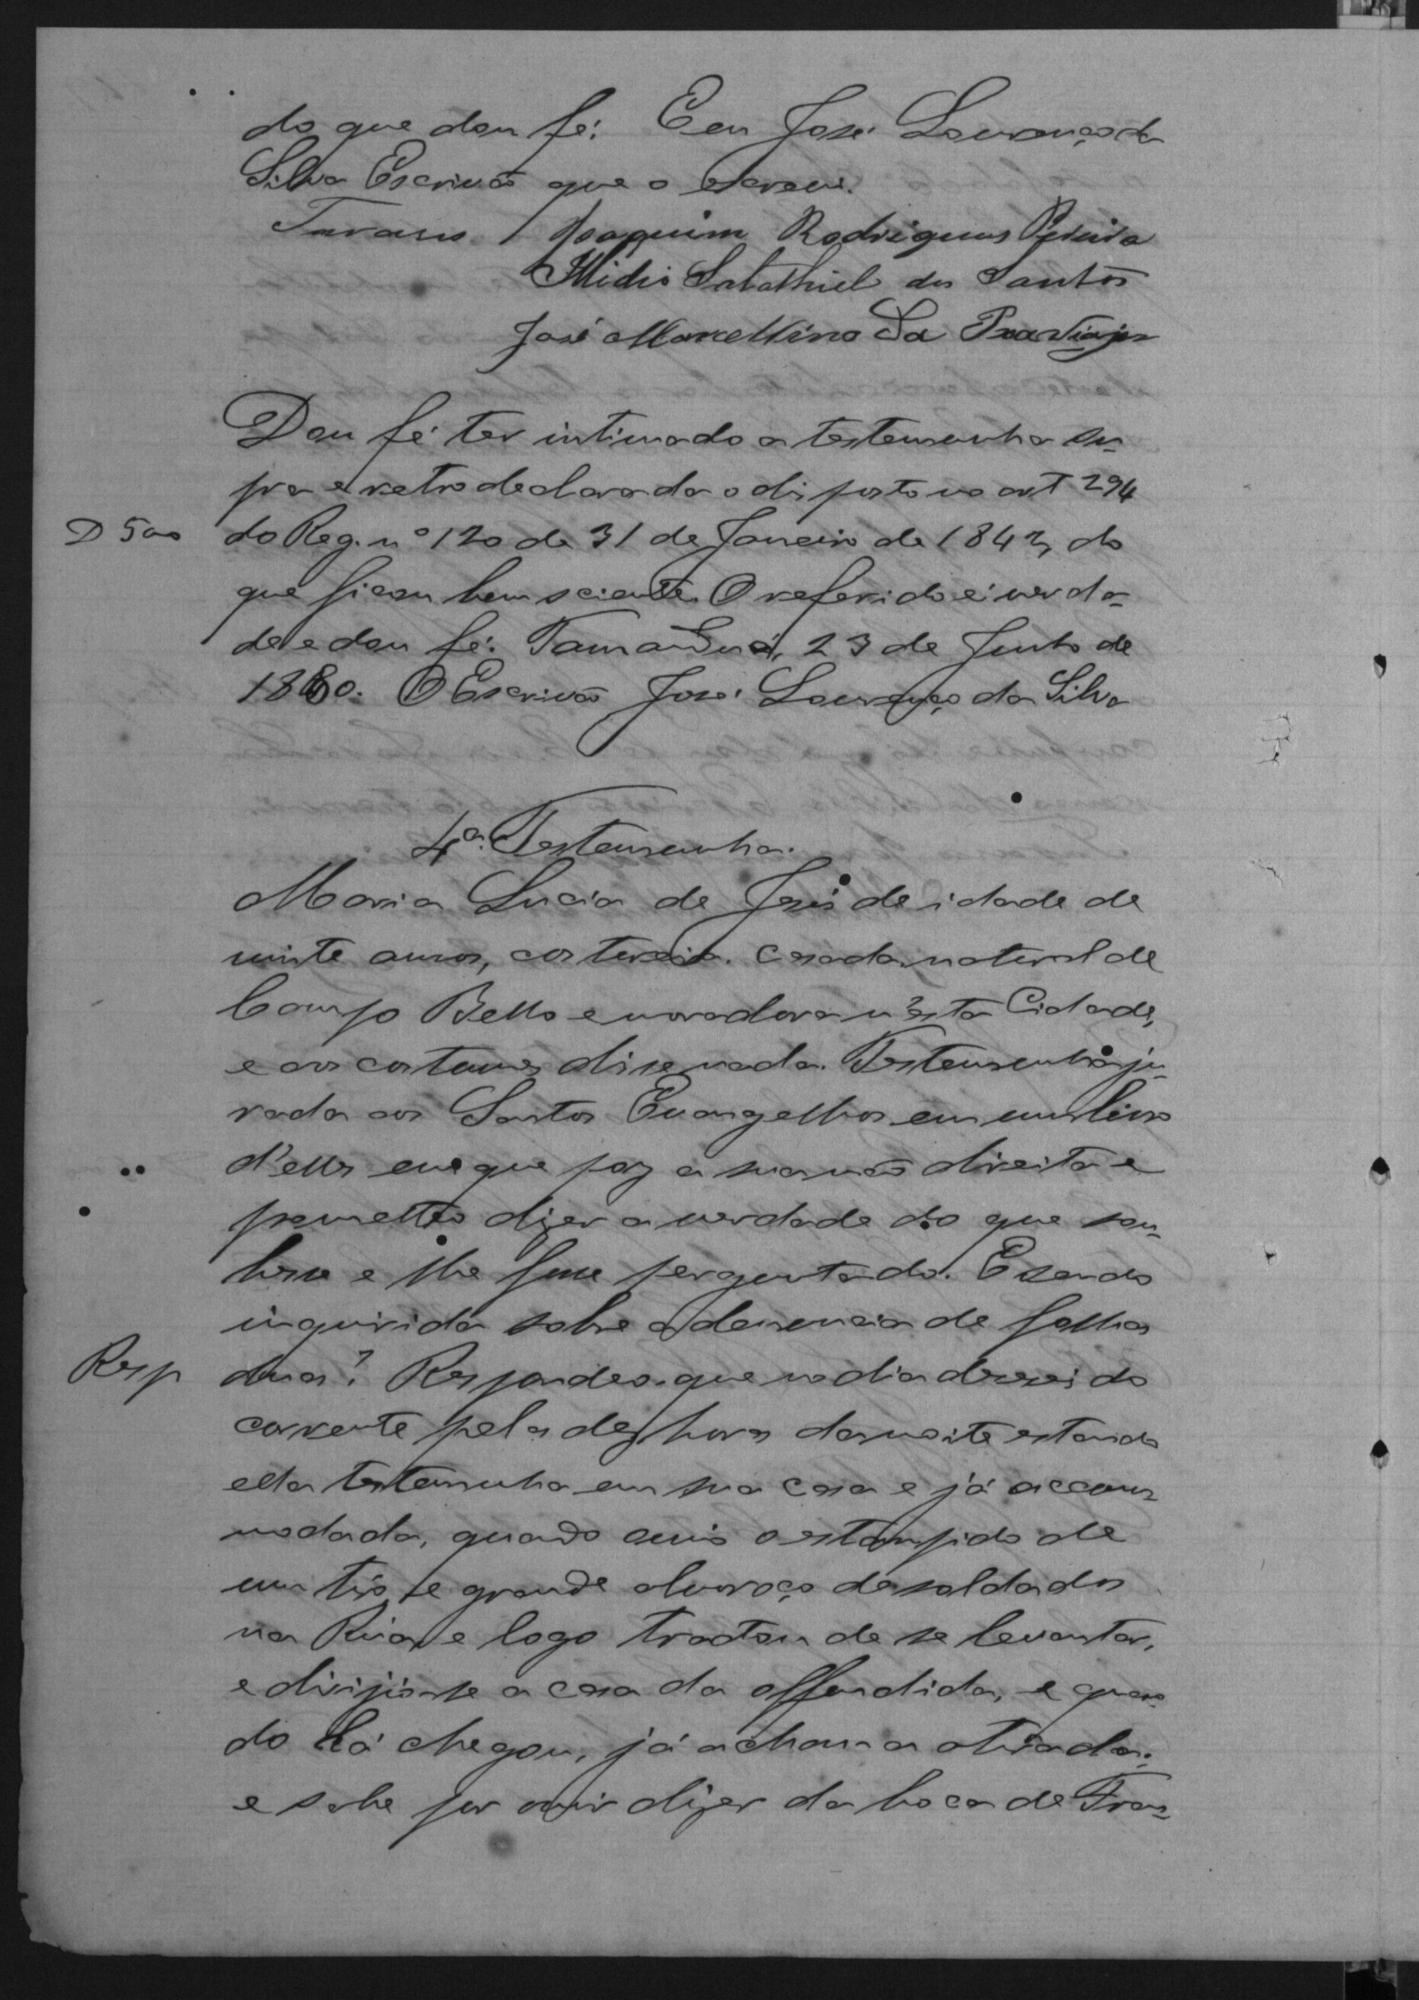 do que dou fé. E eu José Lourenço da
Silva Escrivão que o escrevi.
Tavares Joaquim Rodrigues Pereira
Illidio Salathiel dos Santos
José Marcellino Da
Dou fé ter intimado a testemunha su-
pra e retro declarada o disposto no art 294
D 500 do Reg. nº 120 de 31 de Janeiro de 1842, do
que ficou bem sciente. O referido é verda-
de e dou fé. Tamanduá, 23 de Junho de
1880. O Escrivão José Lourenço da Silva
4ª Testemunha.
Maria Lucia de Jesus de idade de
vinte annos, costureira. casada, natural de
Campo Bello e moradora n'esta Cidade,
e aos costumes disse nada. Testemunha ju-
rada aos Santos Evangelhos em um livro
d'elles em que poz a sua mão direita e
prometteo dizer a verdade do que sou-
besse e lhe fosse perguntado. E sendo
inquirida sobre a denuncia de folhas
Resp duas? Respondeo que no dia deseseis do
corrente pelas dez horas da noite estando
ella testemunha em sua casa e já accom-
modada, quando ouvio o estampido de
um tiro, e grande alvoroço de soldados
na Rua, e logo tratou de se levantar,
e dirijio-se a casa da offendida, e quan-
do lá chegou, já achou-a atirada;
e sabe por ouvir dizer da boca de Fran-